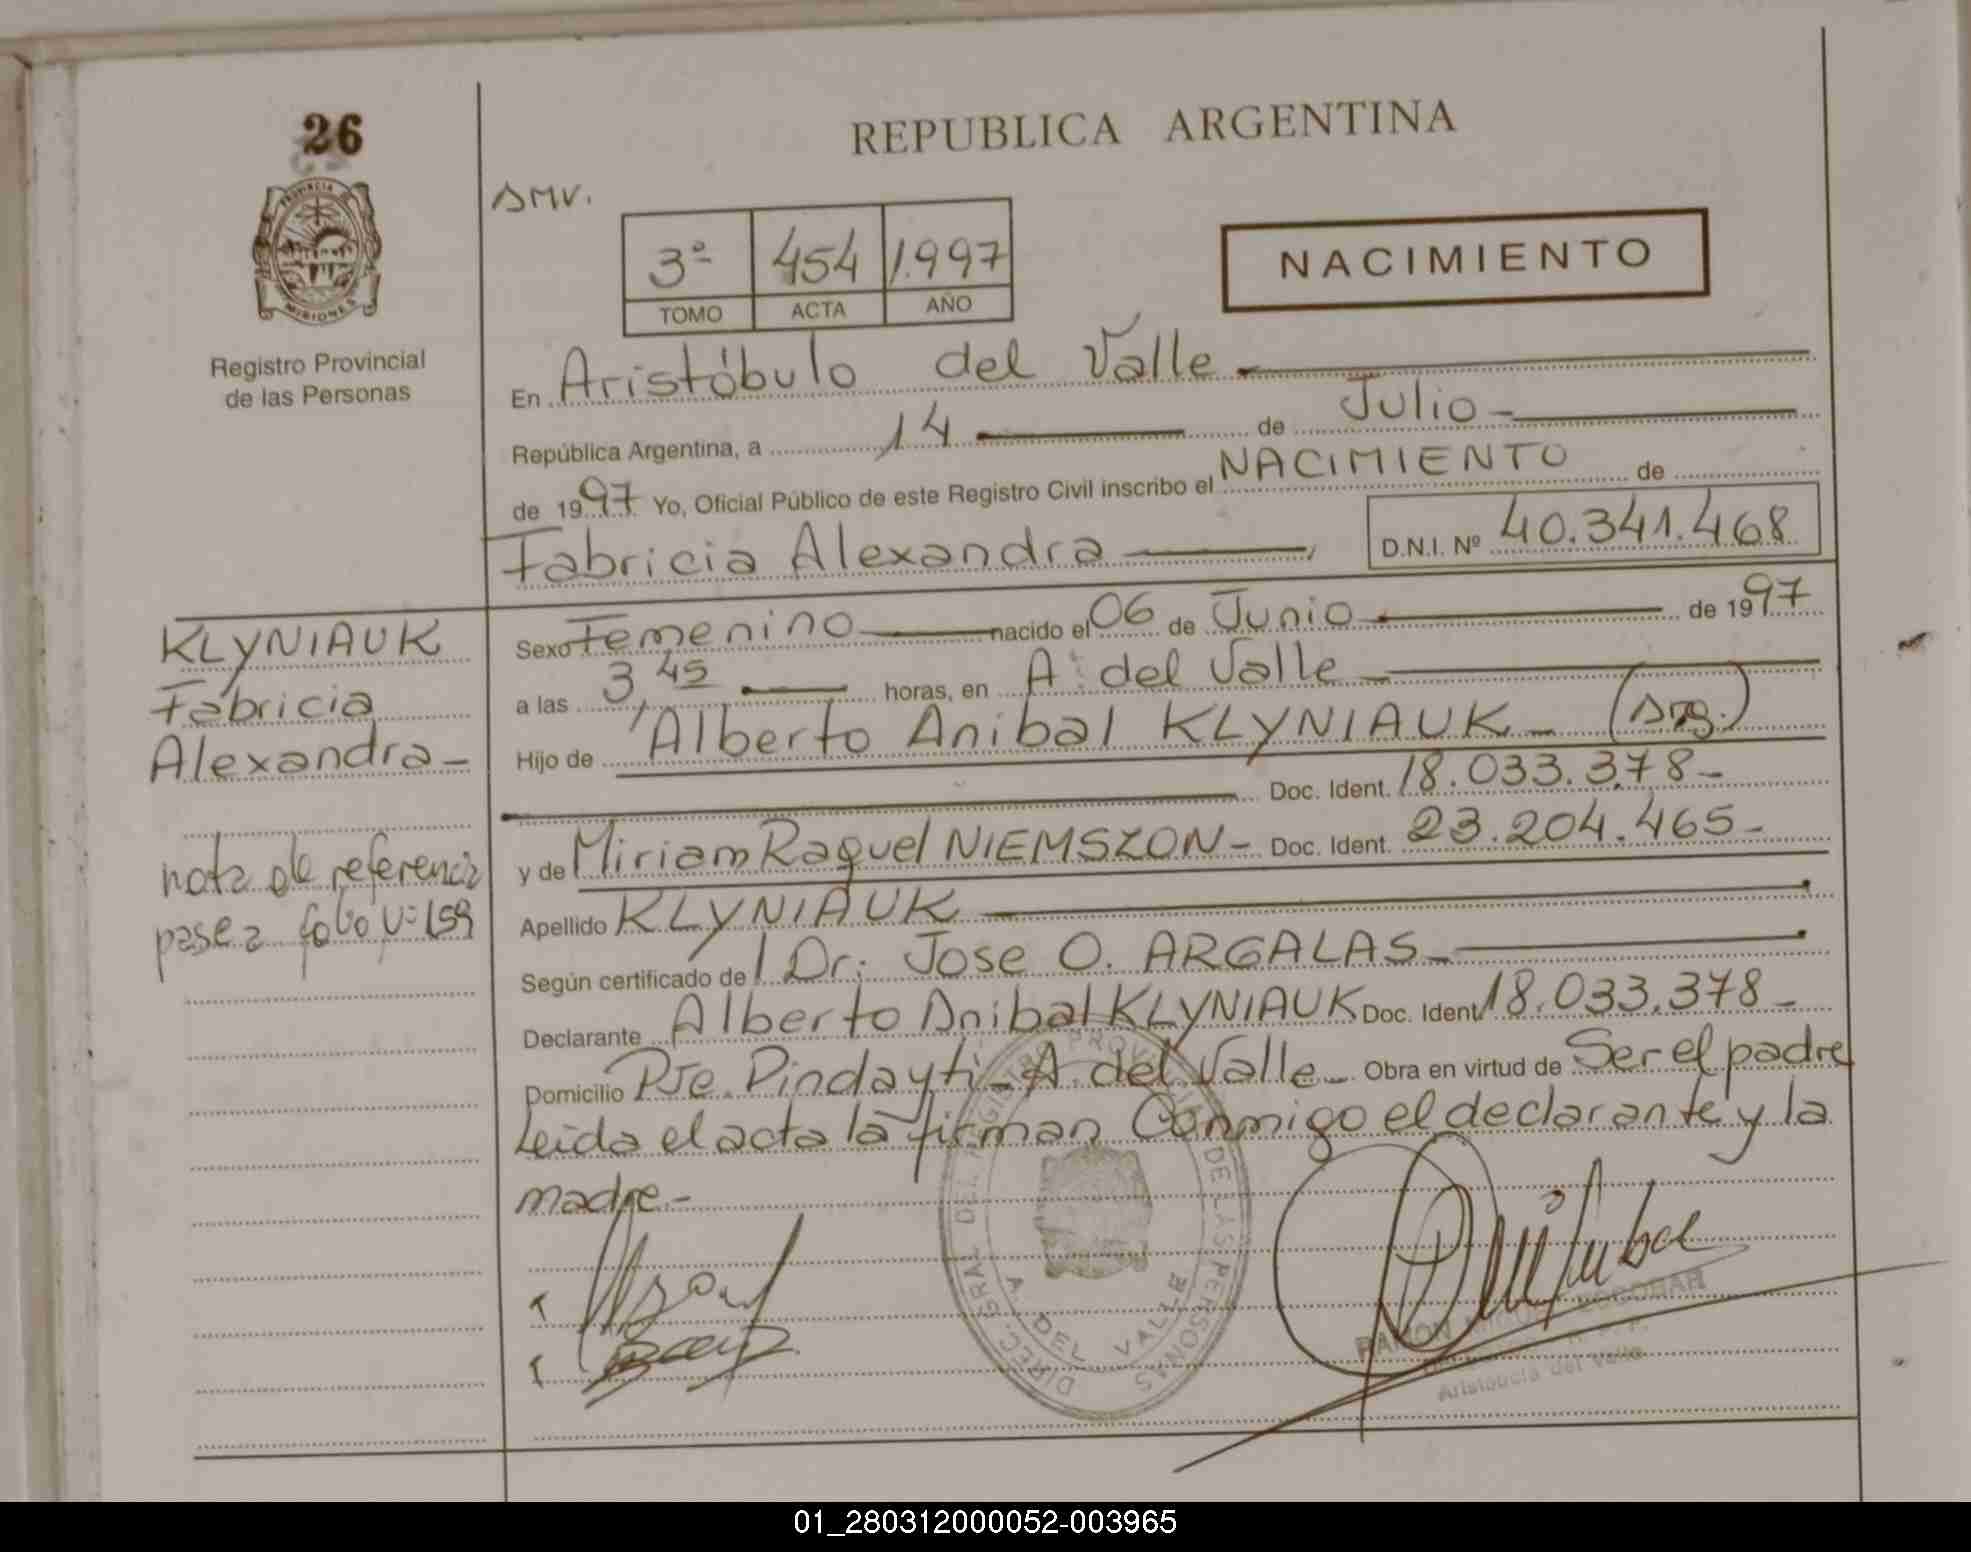 26
PROVINCIA
MISIONES
Registro Provincial
de las Personas
REPUBLICA ARGENTINA
SMV.
3º 454 1.997
TOMO ACTA AÑO
NACIMIENTO
En Aristóbulo del Valle
República Argentina, a 14 de Julio
de 1997 Yo, Oficial Público de este Registro Civil inscribo el NACIMIENTO de
Fabricia Alexandra D.N.I. Nº 40.341.468
KLYNIAUK
Fabricia
Alexandra
nota de referencia
pase a folio
Sexo Femenino nacido el 06 de Junio de 1997
a las 3,45 horas, en A. del Valle
Hijo de Alberto Anibal KLYNIAUK (Arg.)
Doc. Ident. 18.033.378
y de Miriam Raquel NIEMSZON Doc. Ident. 23.204.465
Apellido KLYNIAUK
Según certificado de Dr. Jose O. ARGALAS
Declarante Alberto Anibal KLYNIAUK Doc. Ident 18.033.378
Domicilio Pje. Pindayti - A. del Valle Obra en virtud de Ser el padre
Leida el acta la firman Conmigo el declarante y la
madre.-
DIREC. GRAL DEL REGISTRO PROVINCIAL DE LAS PERSONAS
A. DEL VALLE
RAMON ESCOBAR
Aristobulo del Valle
01_280312000052-003965